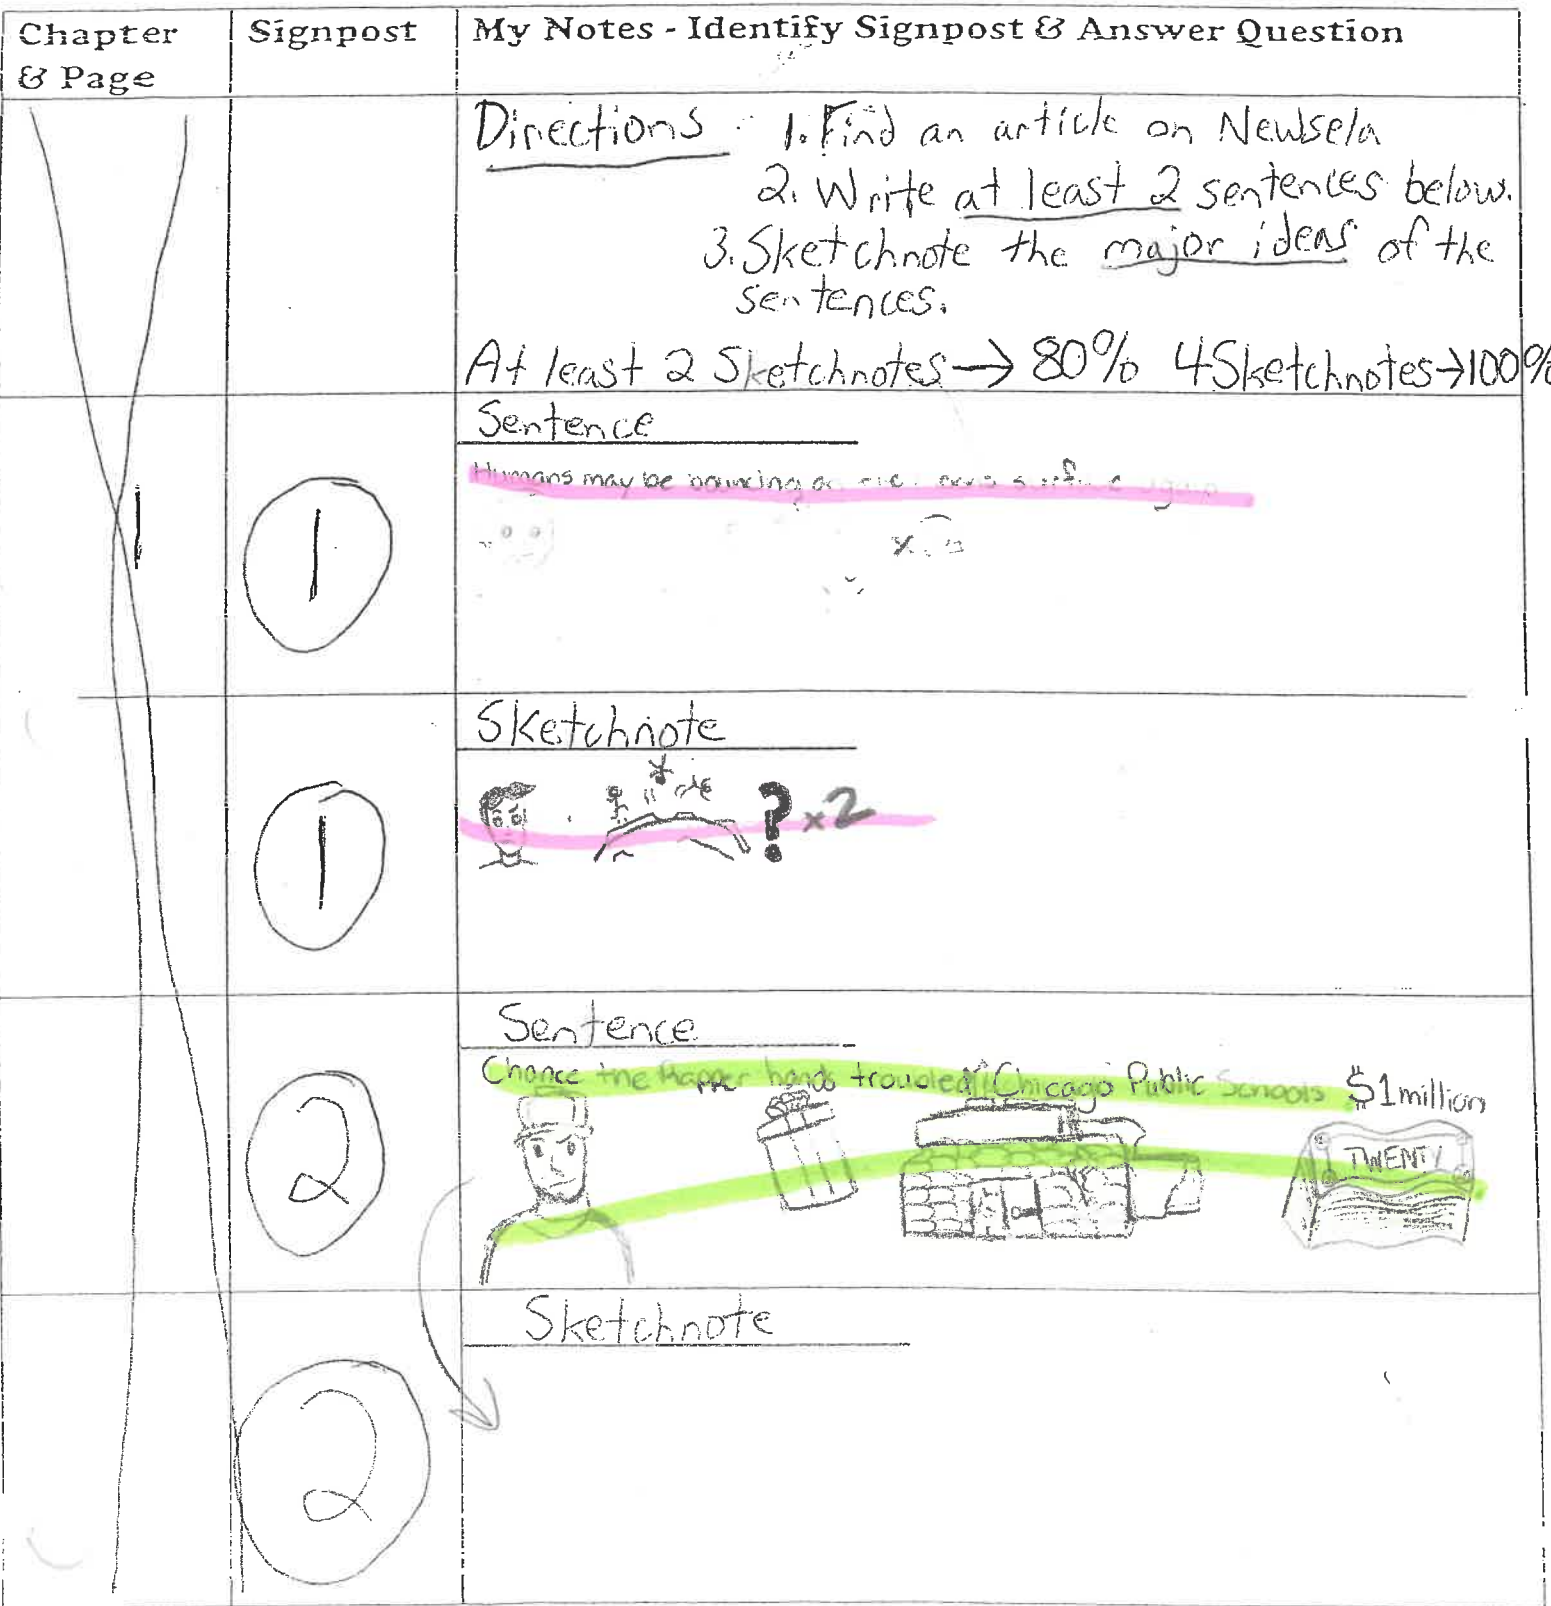 Chapter & Page
Signpost
My Notes - Identify Signpost & Answer Question
Directions 1. Find an article on Newsela
2. Write at least 2 sentences below.
3. Sketchnote the major ideas of the
sentences.
At least 2 Sketchnotes → 80% 4 Sketchnotes → 100%
Sentence
1
1
Humans may be bouncing on surface again
Sketchnote
1
? x2
Sentence
2
Chance the Rapper hands troubled Chicago Public Schools $1 million
TWENTY
Sketchnote
2